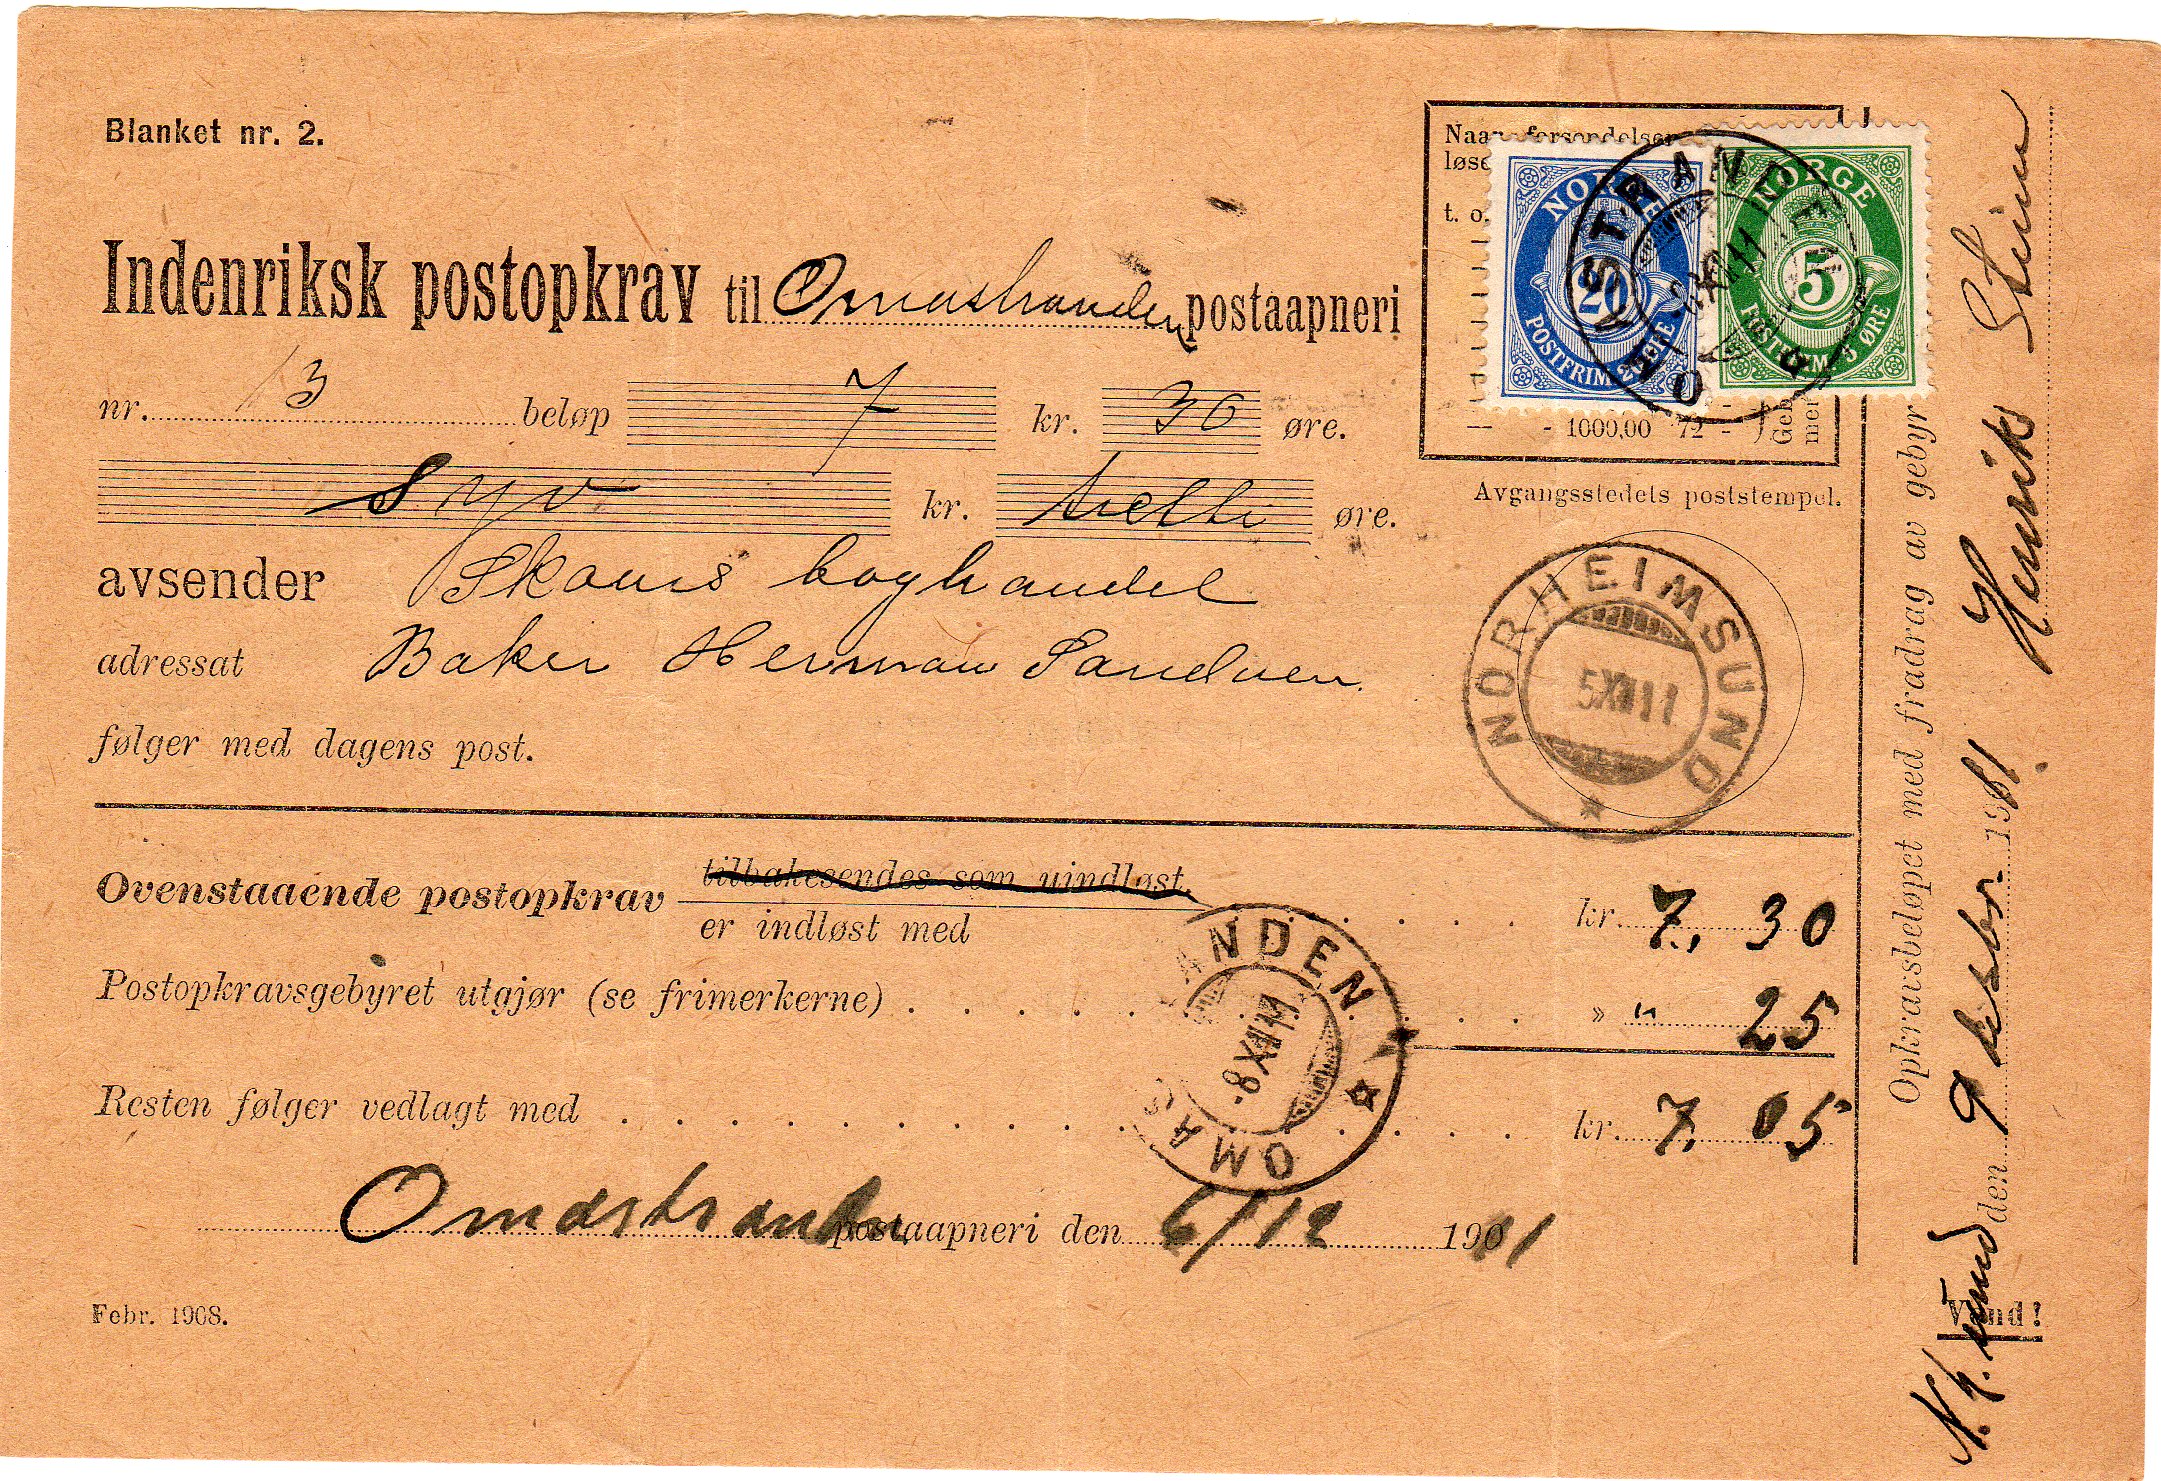 Blanket nr. 2.
Indenriksk postopkrav til Omastranden postaapneri
nr. 13 beløp 7 kr. 30 øre.
Syv kr. tretti øre.
avsender Skaars boghandel
adressat Baker Herman Sandven.
følger med dagens post.
Ovenstaaende postopkrav tilbakesendes som uindløst.
er indløst med kr. 7, 30
Postopkravsgebyret utgjør (se frimerkerne) » " 25
Resten følger vedlagt med kr. 7, 05
Omastranden postaapneri den 6/12 1911
Febr. 1908.
Naar forsendelsen
løse
t. o.
- 1000,00 72 -
Geb
mer
NORGE
20
POSTFRIM. 20 ØRE
NORGE
5
POSTFRIM. 5 ØRE
OMASTRANDEN
Avgangsstedets poststempel.
NORHEIMSUND
5 XII 11
OMAS ANDEN
-8 XII 11
Opkravsbeløpet med fradrag av gebyr
N.h.sund den 9 desbr. 1911.
Henrik Stein
Vend!